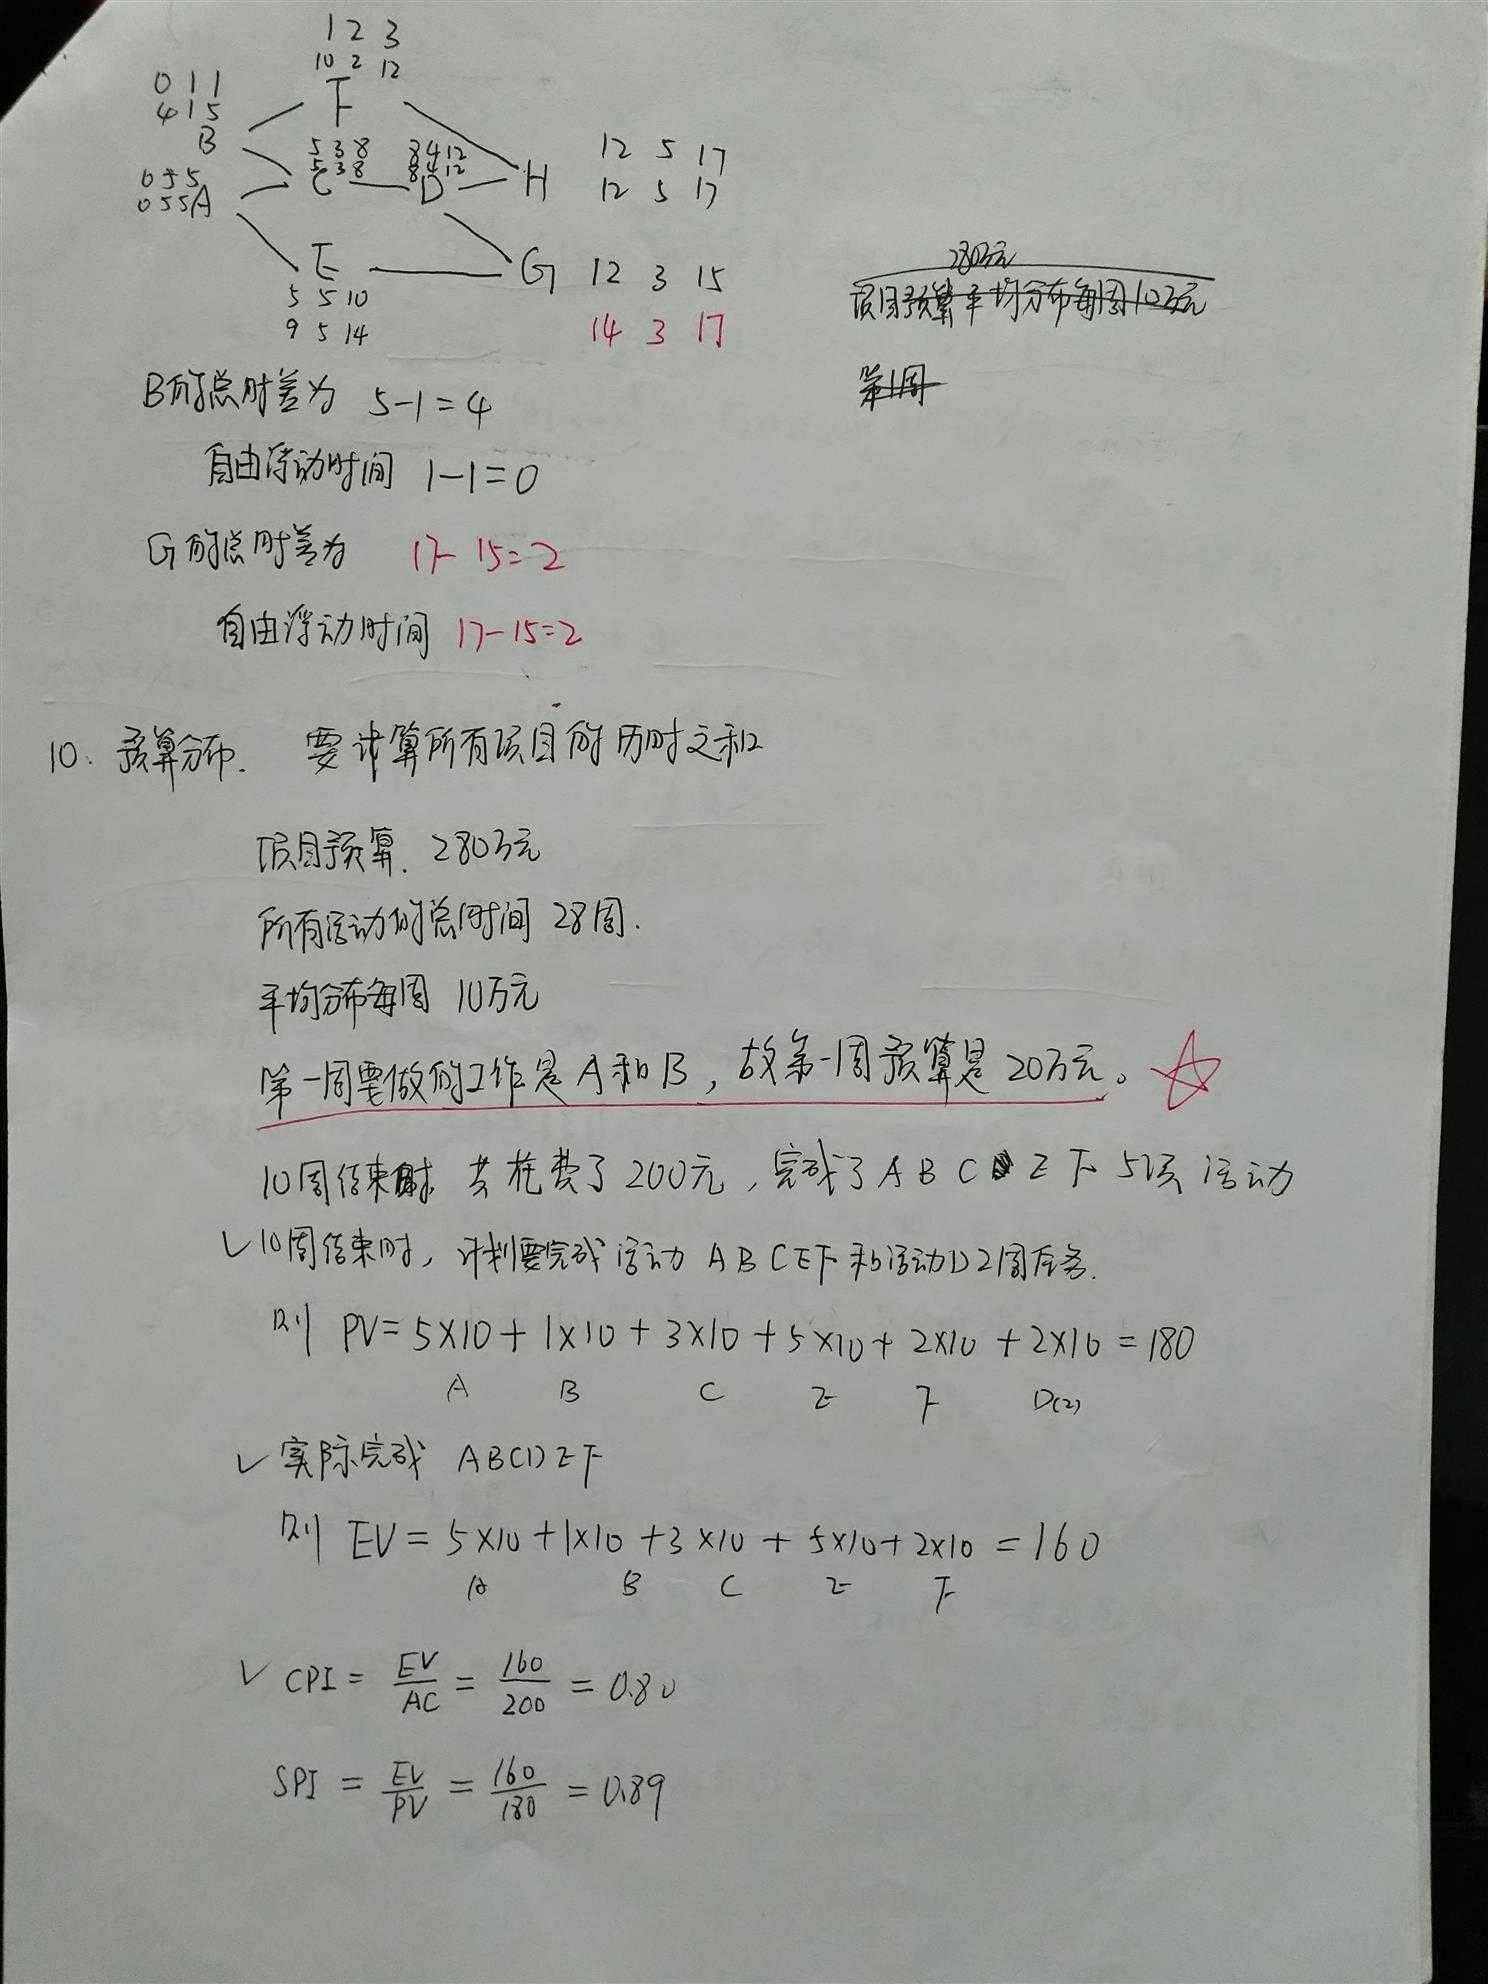 1 2 3
10 2 12
0 1 1
4 1 5
F
B
5 3 8 8 4 12
5 3 8 8 4 12
12 5 17
0 5 5
0 5 5 A
C D H
12 5 17
E G 12 3 15
5 5 10
9 5 14
14 3 17
280万元
项目预算平均分布每周10万元
第1周
B的总时差为 5-1=4
自由浮动时间 1-1=0
G的总时差为 17-15=2
自由浮动时间 17-15=2
10. 预算分布. 要计算所有项目的历时之和
项目预算. 280万元
所有活动的总时间 28周.
平均分布每周 10万元
第一周要做的工作是A和B，故第一周预算是20万元。☆
10周结束时 共花费了200元，完成了ABC E F 5项活动
✓10周结束时，计划要完成活动 ABCEF和活动D2周任务.
则 PV=5×10+1×10+3×10+5×10+2×10+2×10=180
A B C E F D(2)
✓实际完成 ABCDEF
则 EV=5×10+1×10+3×10+5×10+2×10=160
A B C E F
✓ CPI = EV/AC = 160/200 = 0.80
SPI = EV/PV = 160/180 = 0.89